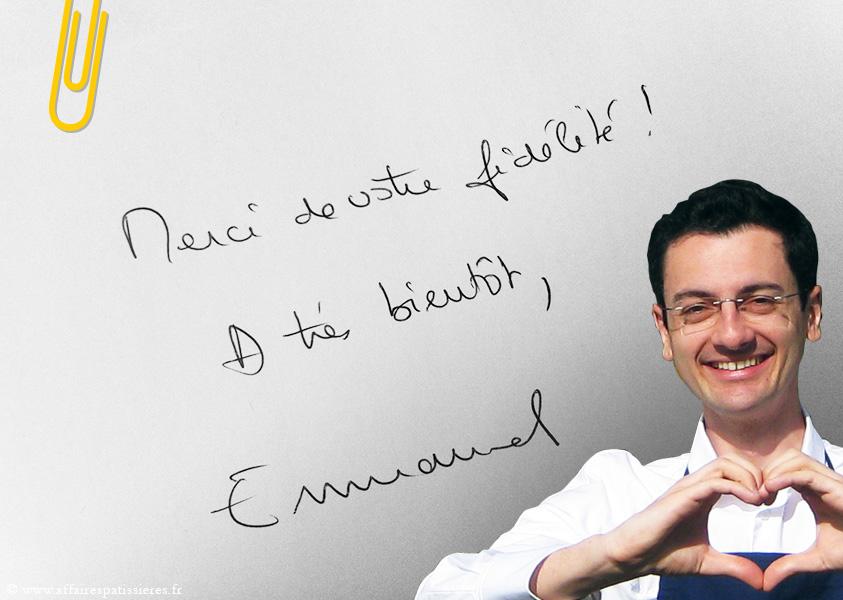 Merci de votre fidélité !
A très bientôt,
Emmanuel
© www.affairespatissieres.fr